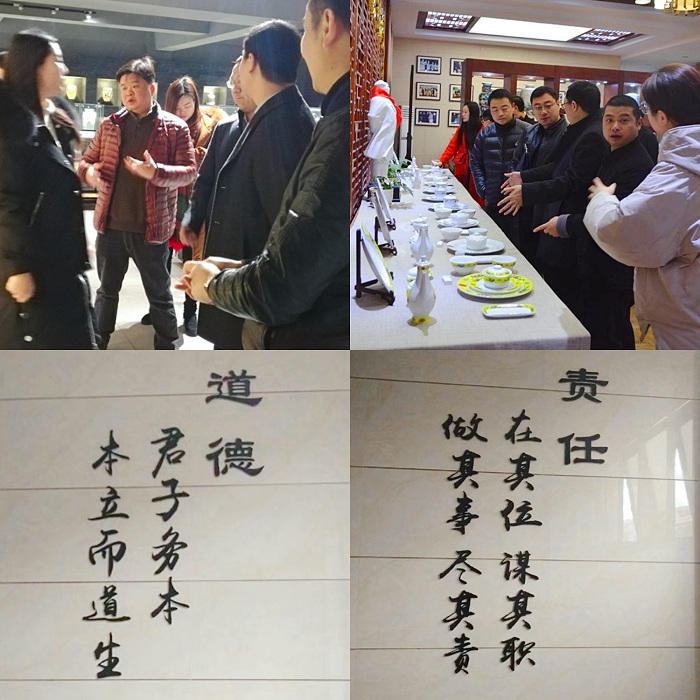 道德
君子务本
本立而道生
责任
在其位 谋其职
做其事 尽其责